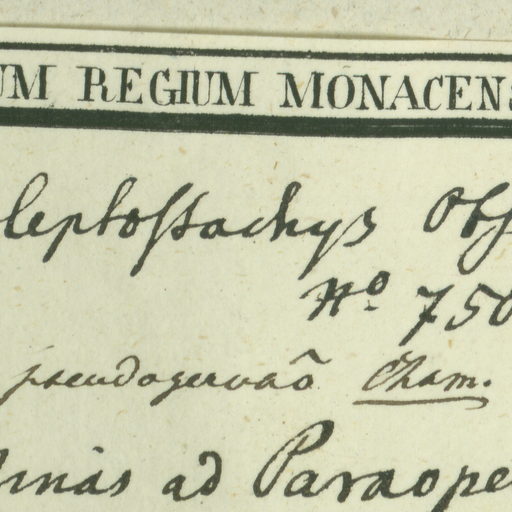 UM REGIUM MONACENS
leptostachys Obs
No. 750
pseudogervaõ Cham.
Minas ad Paraope